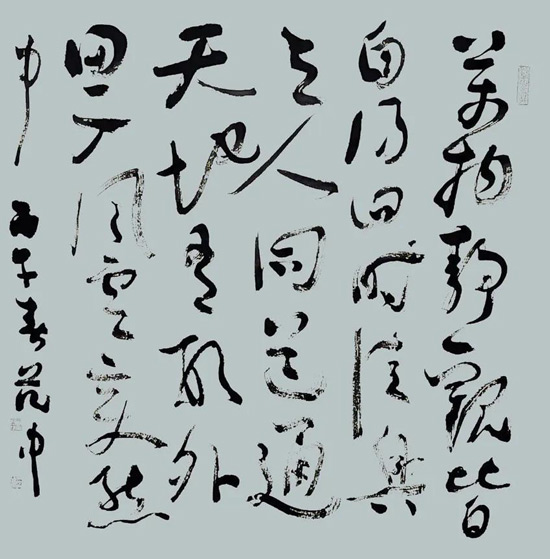 萬物靜觀皆
自得四时佳興
与人同道通
天地有形外
思入风雲变態
中
丙午春范中